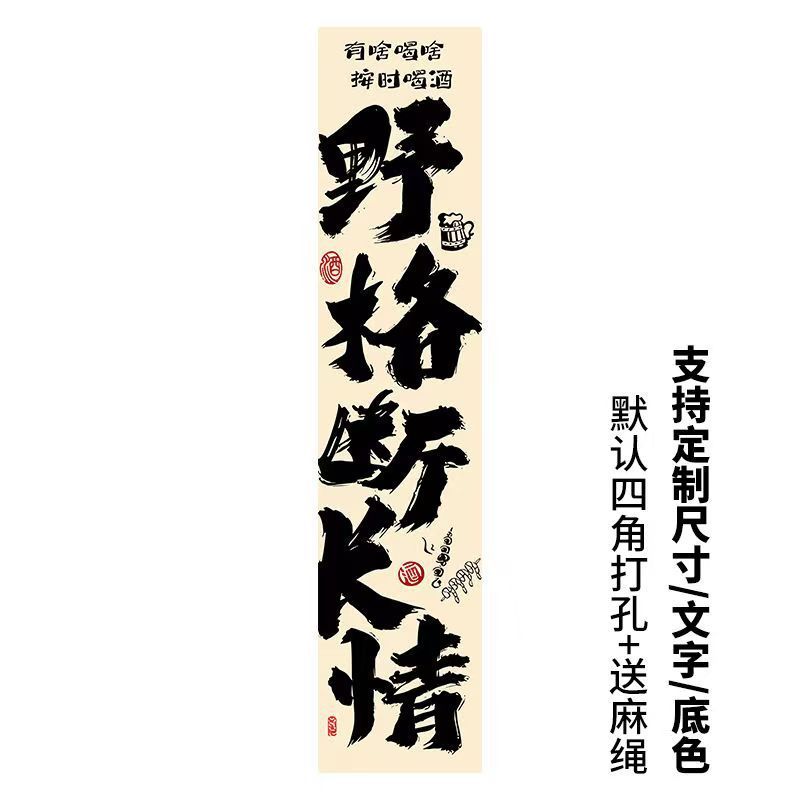 有啥喝啥
按时喝酒
野格断长情
酒
酒
支持定制尺寸/文字/底色
默认四角打孔+送麻绳